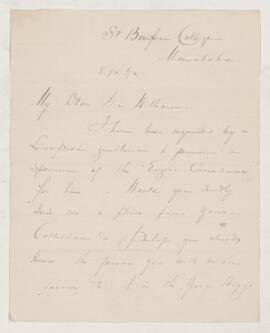 St Boniface College
Manitoba
My Dear Sir William
I have been requested by a
Liverpool gentleman to procure a
specimen of the "Eozoon Canadense"
for him. Would you kindly
send me a piece from your
Collection? Perhaps you already
know the person you will be doing
favour to. It is the George Higgs